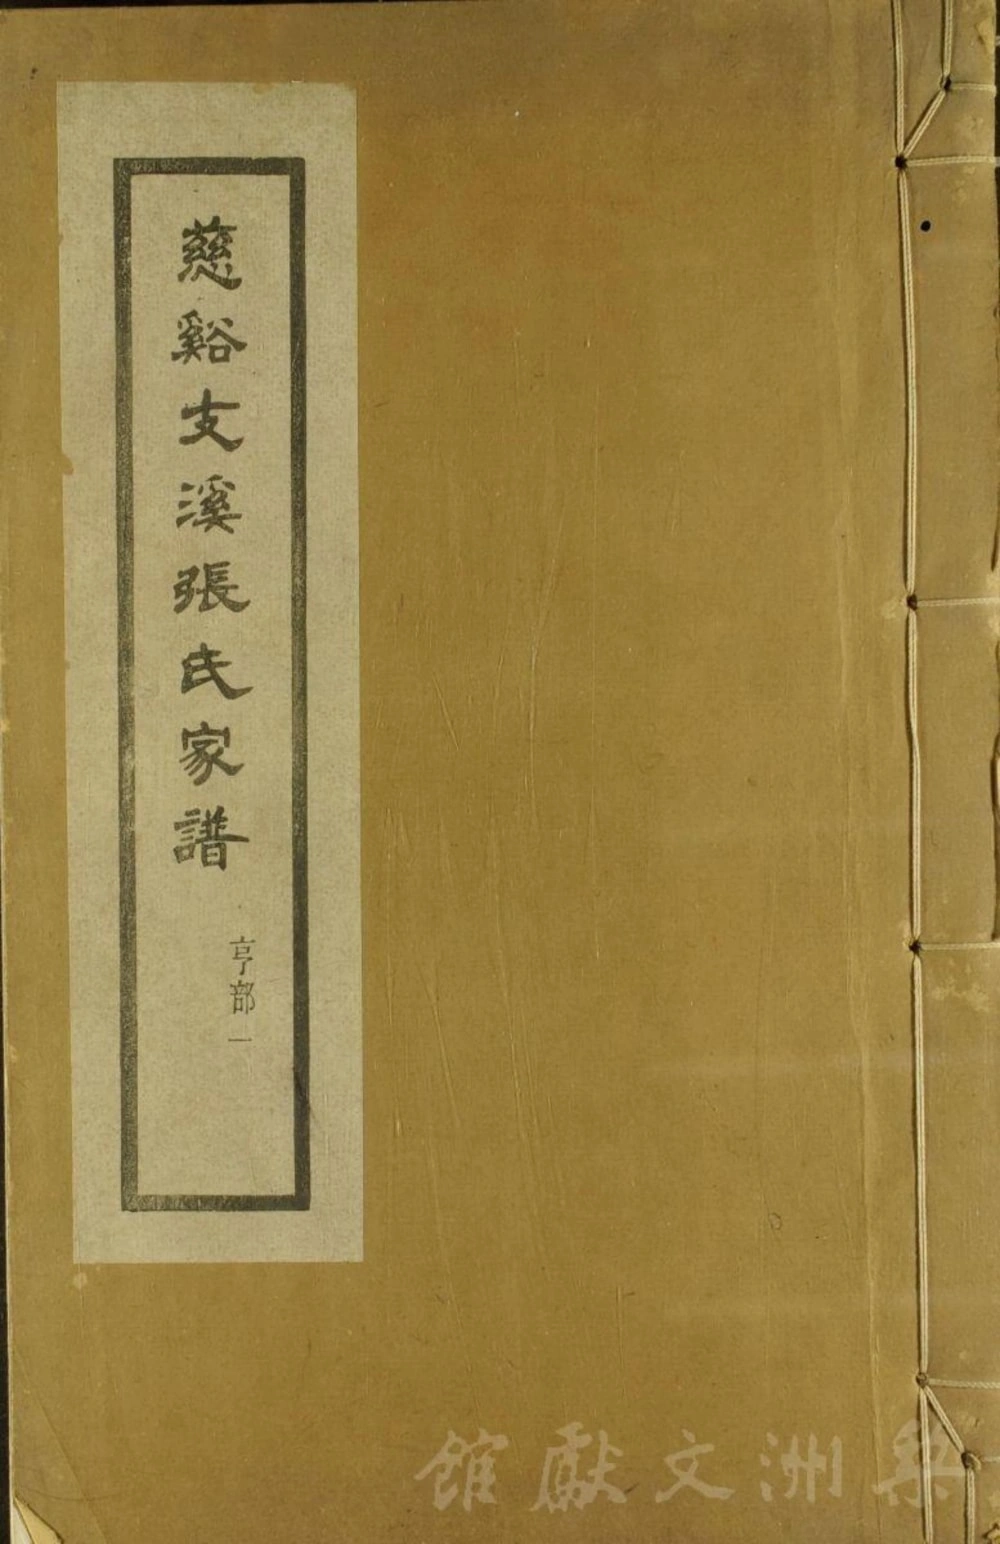 慈谿支溪張氏家譜
亨部一
梨洲文獻館